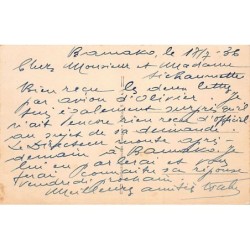 Bamako, le 17/7-36
Chers Monsieur et Madame
Bien reçu les deux lettres
par avion d'Olivier. Je
suis également surpris qu'il
n'ait encore rien reçu d'officiel
au sujet de sa demande.
Le Directeur monte après
demain à Bamako. Je
lui en parlerai et vous
ferai connaître sa réponse
vendredi prochain.
Meilleures amitiés